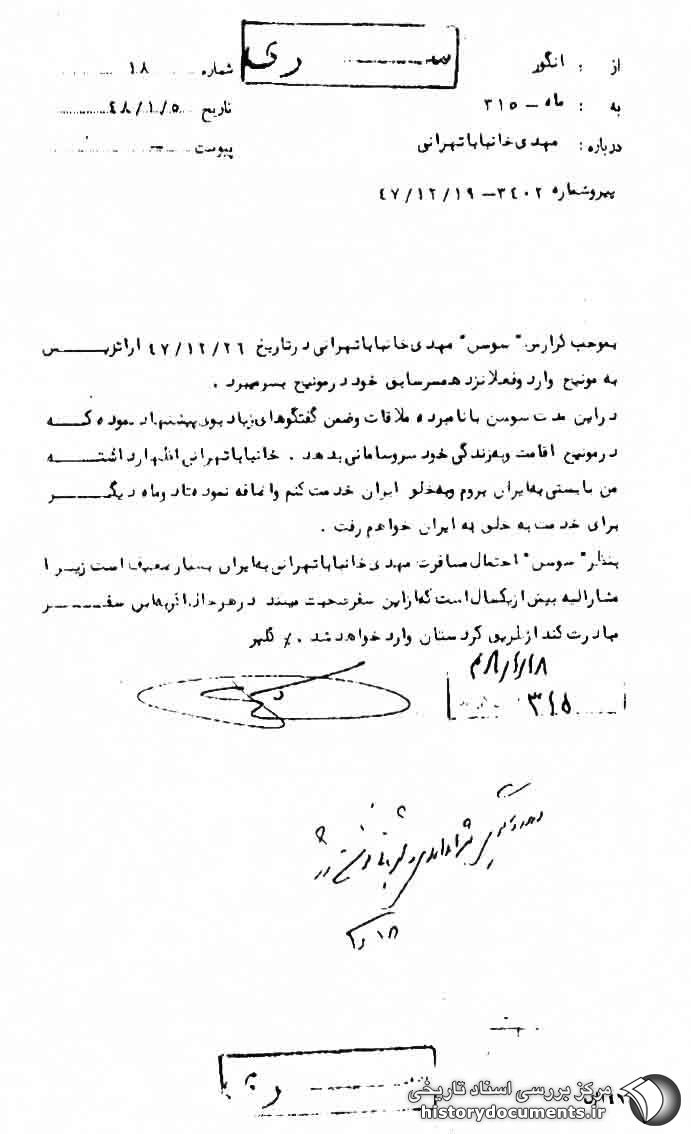 ســــری
از : انگور
شماره ۱۸
به : ماه – ۳۱۵
تاریخ ۴۸/۱/۵
درباره : مهدی خانباباتهرانی
پیوست –
پیروشماره ۳۴۰۲–۴۷/۱۲/۱۹
بموجب گزارش "سوسن" مهدی خانباباتهرانی درتاریخ ۴۷/۱۲/۲۶ ازانگلیس
به مونیخ وارد وفعلا نزد همسرسابق خود درمونیخ بسرمیبرد .
دراین مدت سوسن با نامبرده ملاقات وضمن گفتگوهای زیاد بوی پیشنهاد نموده کــه
درمونیخ اقامت وبه زندگی خود سروسامانی بدهد . خانباباتهرانی اظهارداشتـــه
من بایستی به ایران بروم وبه خلق ایران خدمت کنم واضافه نموده تا دوماه دیگـــر
برای خدمت به خلق به ایران خواهم رفت .
بنظر "سوسن" احتمال مسافرت مهدی خانباباتهرانی به ایران بسیار ضعیف است زیــرا
مشارالیه بیش ازیکسال است که ازاین سفر صحبت میکند درهرحال اگر باین سفـــر
مبادرت کند ازطریق کردستان وارد خواهد شد . ٪ گلپر
۴۸/۱/۱۸
۳۴۵
۱۸
مرکز بررسی اسناد تاریخی
historydocuments.ir